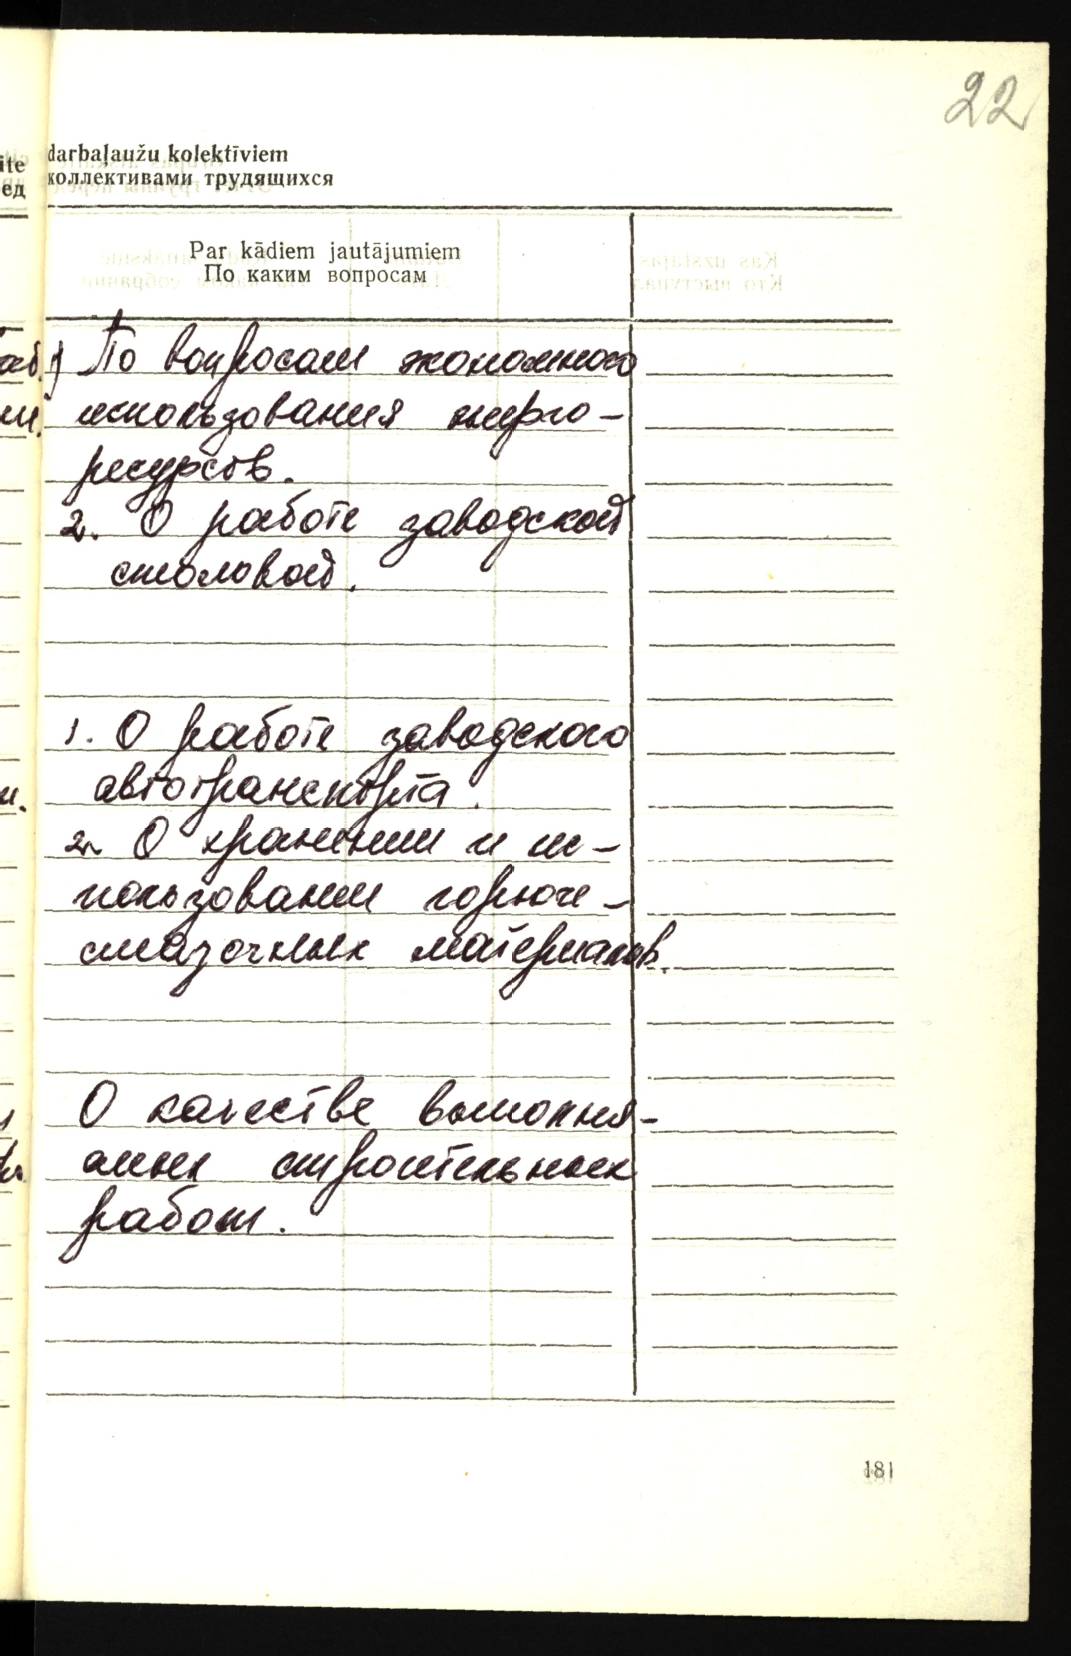 22
darbaļaužu kolektīviem
коллективами трудящихся
Par kādiem jautājumiem
По каким вопросам
1) По вопросам экономного
использования энерго-
ресурсов.
2. О работе заводской
столовой.
1. О работе заводского
автотранспорта.
2. О хранении и ис-
пользовании горюче-
смазочных материалов.
О качестве выполня-
емых строительных
работ.
181